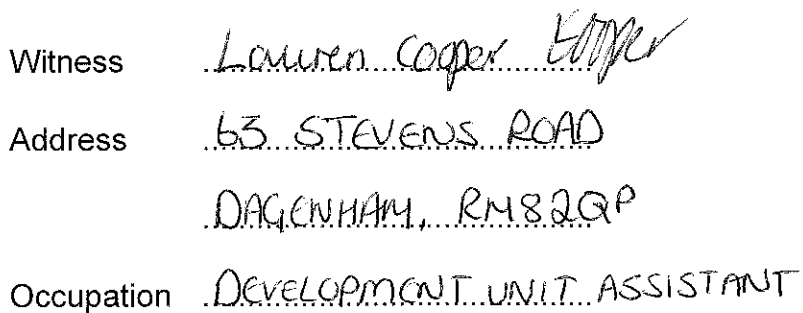 Witness Lauren Cooper LCooper
Address 63 STEVENS ROAD
DAGENHAM, RM82QP
Occupation DEVELOPMENT UNIT ASSISTANT